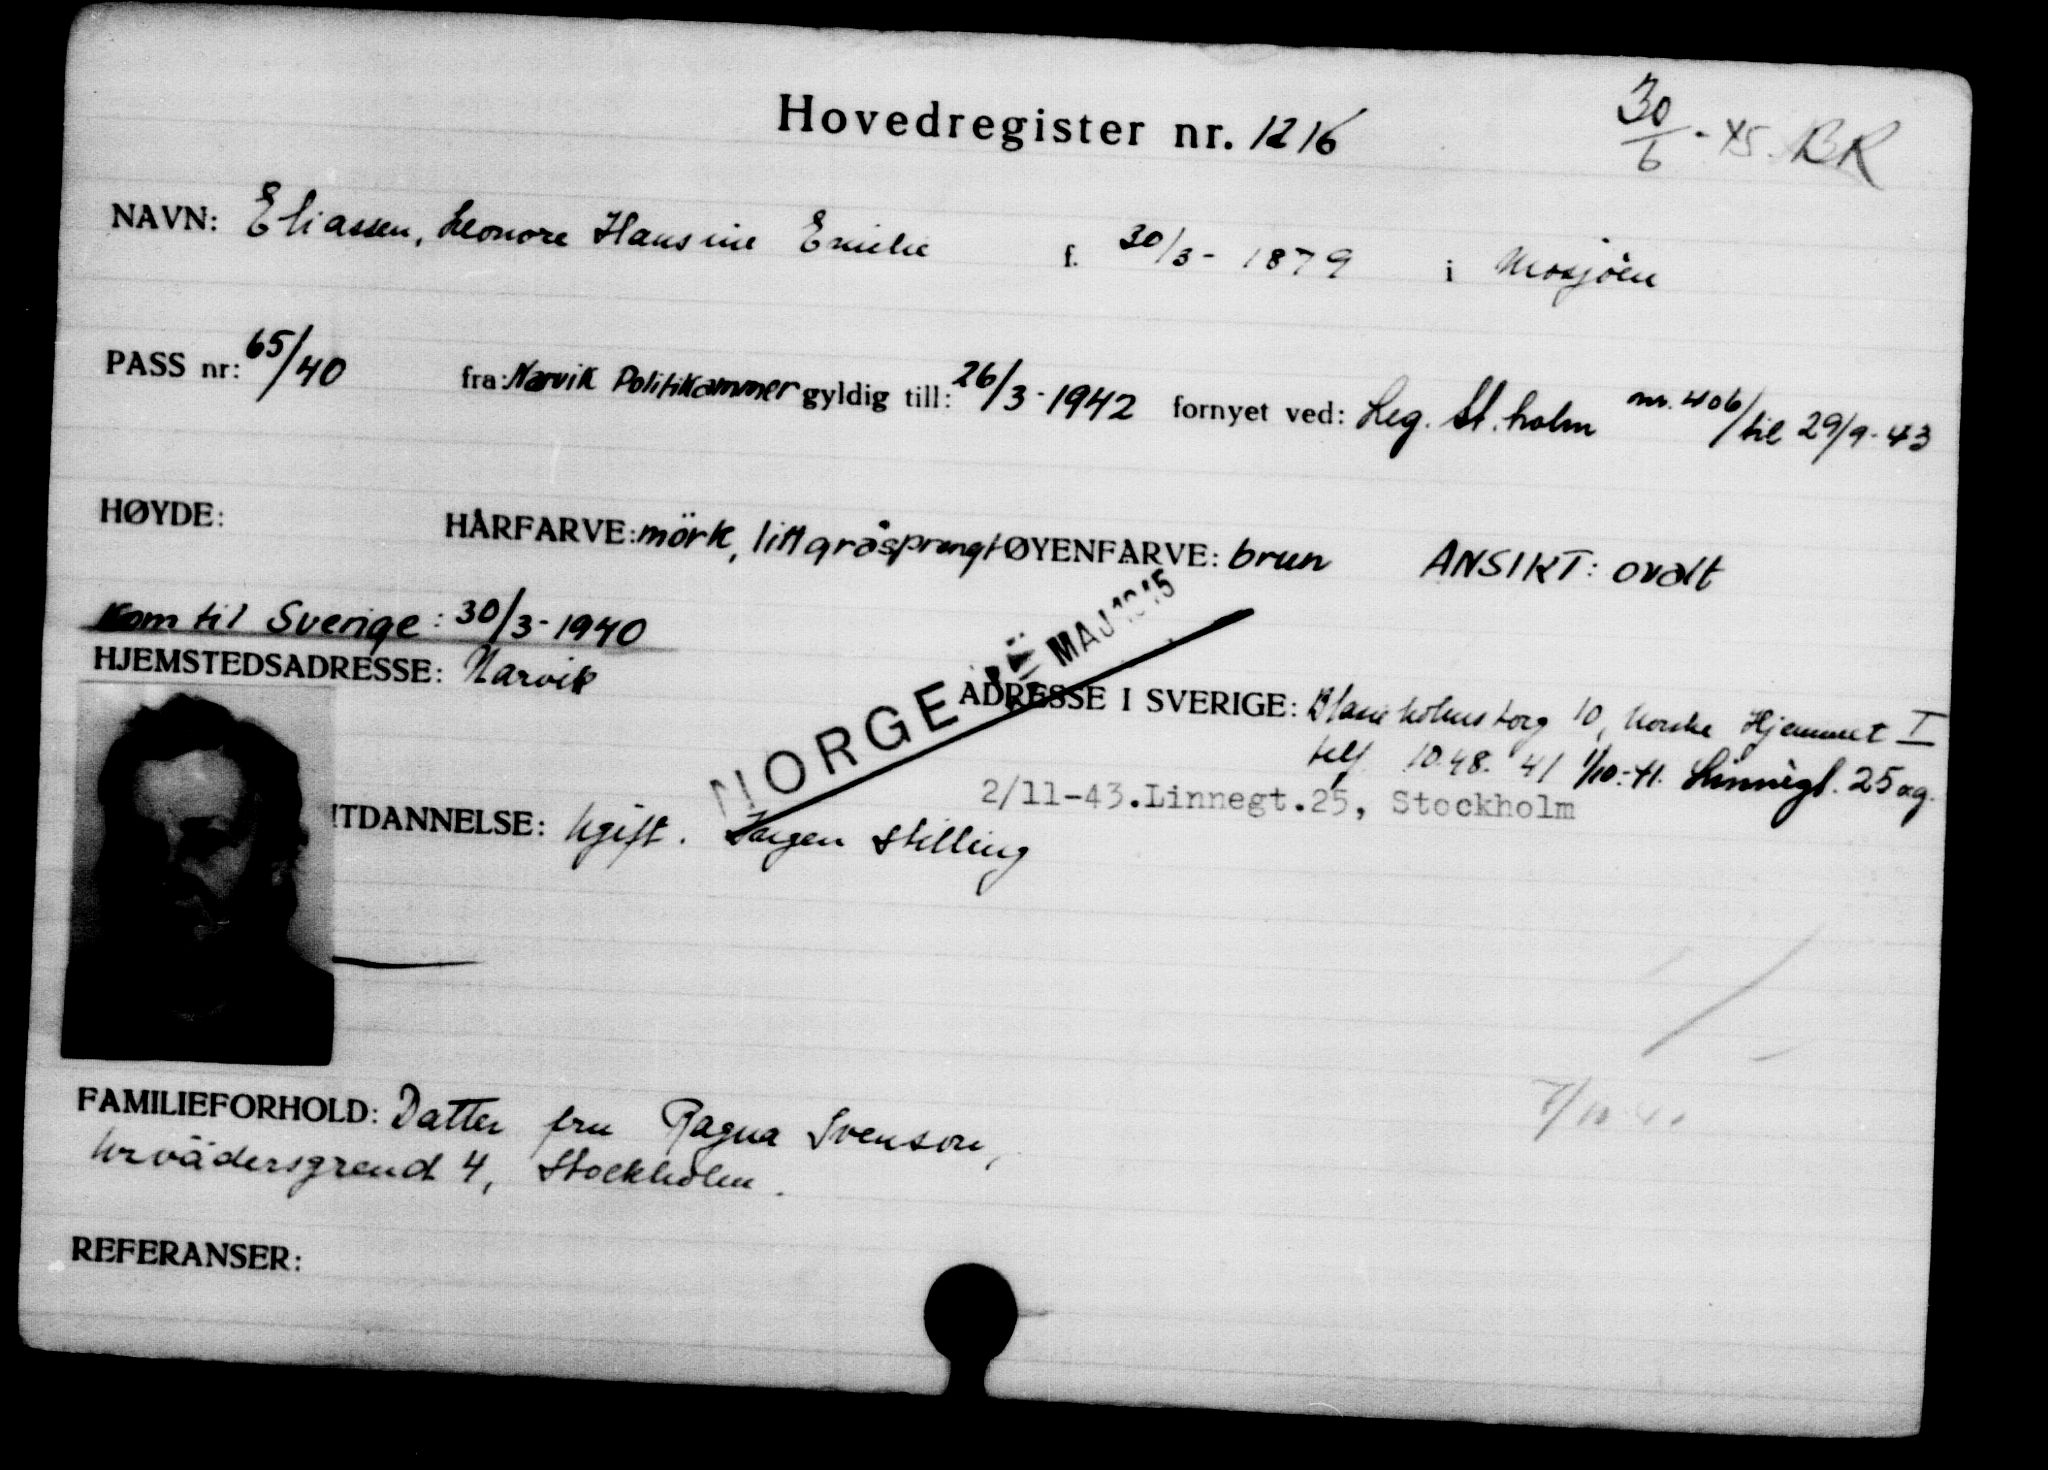 Hovedregister nr. 1216
30/6 - 45. BR
NAVN: Eliassen, Leonore Hansine Emilie f. 30/3 - 1879 i Mosjöen
PASS nr: 65/40 fra: Narvik Politikammer gyldig till: 26/3 - 1942 fornyet ved: Leg. St.holm nr. 406/til 29/9-43
HØYDE: HÅRFARVE: mörk, litt gråsprengt ØYENFARVE: brun ANSIKT: ovalt
Kom til Sverige: 30/3-1940
HJEMSTEDSADRESSE: Narvik
NORGE MAJ 1945
ADRESSE I SVERIGE: Blasieholmstorg 10, Norske Hjemmet I
telf. 10.48.41 1/10.-41. Linnégt. 25
2/11-43.Linnegt.25, Stockholm
UTDANNELSE: Ugift. Ingen stilling
FAMILIEFORHOLD: Datter fru Ragna Svenson,
Urvädersgrend 4, Stockholm.
REFERANSER: